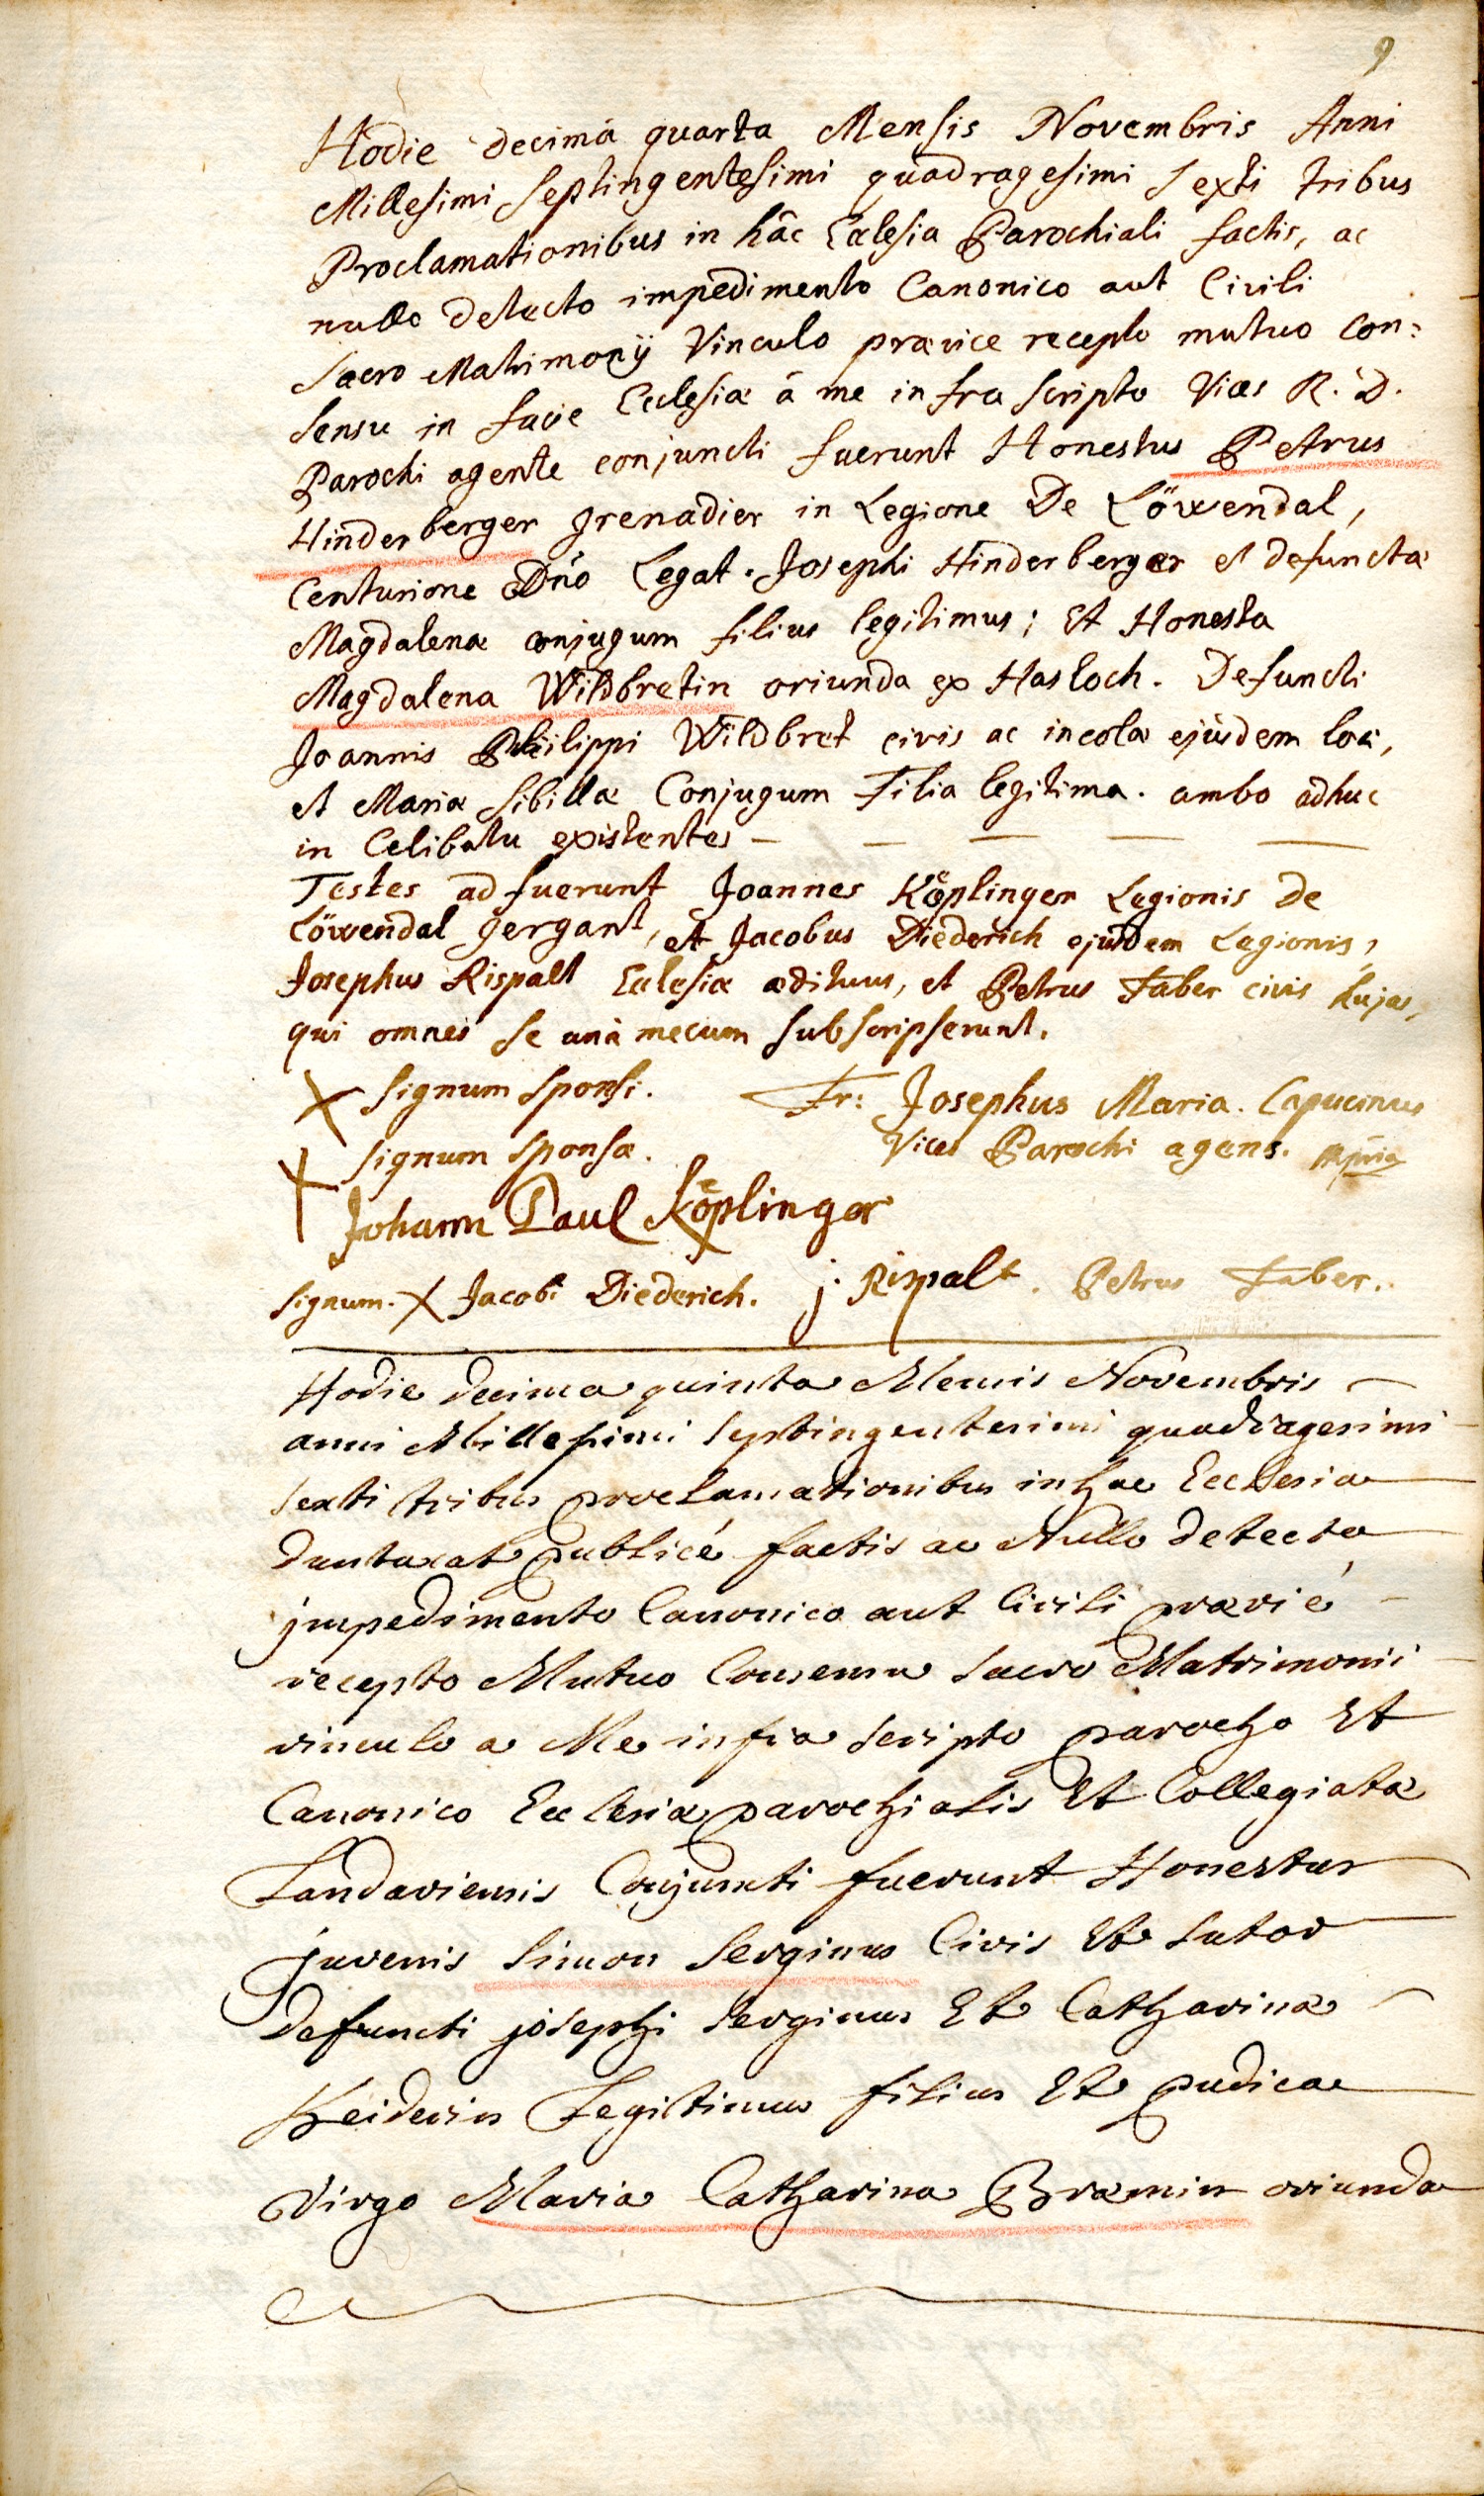 9
Hodie decimâ quarta Mensis Novembris Anni
Millesimi septingentesimi quadragesimi sexti tribus
Proclamationibus in hâc Eclesia Parochiali factis, ac
nullo detecto impedimento Canonico aut Civili
Sacro Matrimonÿ Vinculo prævice recepto mutuo con:
sensu in facie Ecclesiæ â me infra scripto Vices R. D.
Parochi agente conjuncti fuerunt Honestus Petrus
Hinderberger grenadier in Legione De Löwendal,
Centurione Dño Legat. Josephi Hinderberger et defunctæ
Magdalenæ conjugum filius legitimus; Et Honesta
Magdalena Wildbretin oriunda ex Hasloch. Defuncti
Joannis Philippi Wildbret civis ac incolæ ejusdem loci,
et Mariæ Sibillæ Conjugum Filia legitima. ambo adhuc
in Celibatu existentes —
Testes adfuerunt Joannes Köplinger Legionis De
Löwendal gergant, et Jacobus Diederich ejusdem Legionis,
Josephus Rispalt Eclesiæ ædituus, et Petrus Faber civis hujas,
qui omnes se unà mecum subscripserunt.
X signum sponsi. Fr: Josephus Maria. Capucinus
X signum sponsæ. Vices Parochi agens. mpria
Johann Paul Köplinger
signum. X Jacobi Diederich. j. Rispalt. Petrus Faber.
Hodie decima quinta Mensis Novembris
anni Millesimi septingentesimi quadragesimi
sexti tribus proclamationibus in hac Ecclesia
duntaxat publicé factis ac Nullo detecto
jmpedimento Canonico aut Civili prævié
recepto Mutuo Consensu sacro Matrimonii
vinculo a Me infra scripto parocho Et
Canonico Ecclesiæ parochialis Et Collegiatæ
Landaviensis Conjuncti fuerunt Honestus
juvenis Simon Serginus Civis Et sutor
defuncti josephi serginus Et Catharinæ
Heiderin Legitimus filius Et pudica
Virgo Maria Catharina Bræmin oriunda